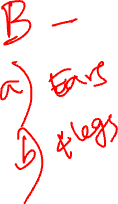 B -
a) Ears
b) 4legs